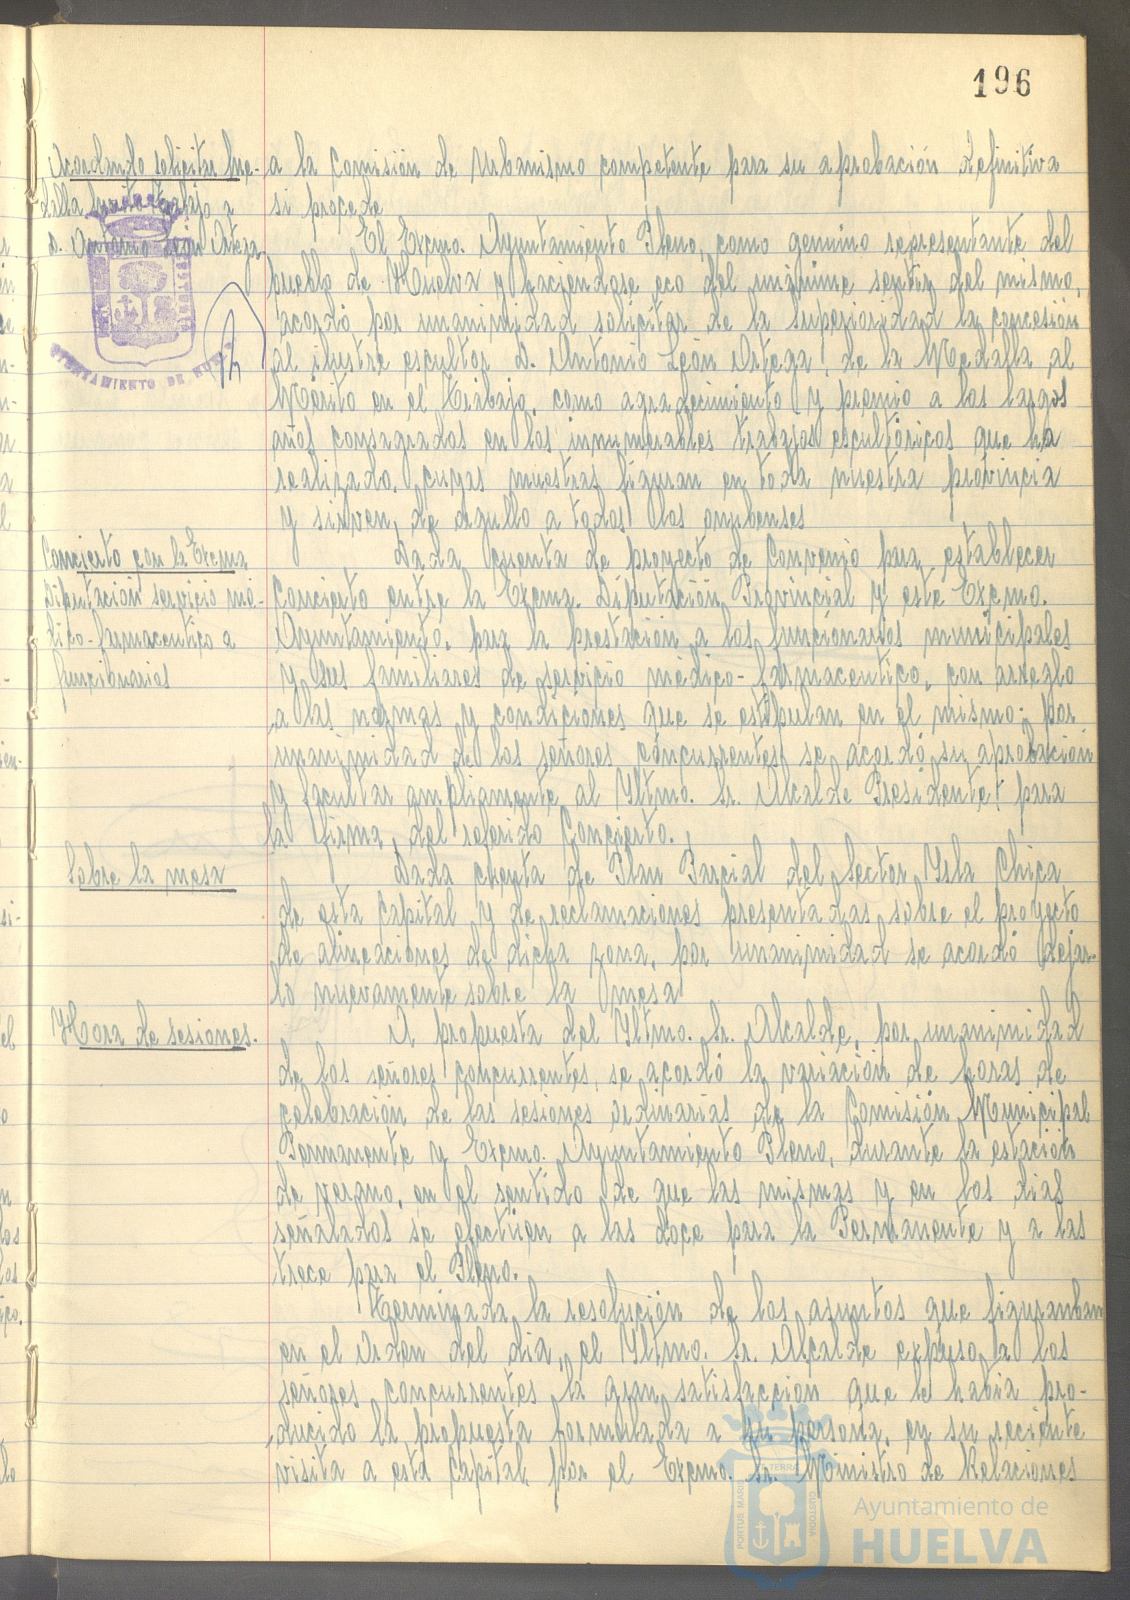 196
Acordando solicitar Me-
dalla Mérito Trabajo a
D. Antonio León Ortega
a la Comisión de Urbanismo competente para su aprobación definitiva
si procede
El Excmo. Ayuntamiento Pleno, como genuino representante del
pueblo de Huelva y haciendose eco del unánime sentir del mismo,
acordó por unanimidad solicitar de la Superioridad la concesión
al ilustre escultor D. Antonio León Ortega, de la Medalla al
Mérito en el Trabajo, como agradecimiento y premio a los largos
años consagrados en los innumerables trabajos escultóricos que ha
realizado, cuyas muestras figuran en toda nuestra provincia
y sirven de orgullo a todos los onubenses
AYUNTAMIENTO DE HUELVA
Concierto con la Excma
Diputación servicio mé-
dico-farmaceutico a
funcionarios
Dada cuenta de proyecto de Convenio para establecer
Concierto entre la Excma. Diputación Provincial y este Excmo.
Ayuntamiento, para la prestación a los funcionarios municipales
y sus familiares de servicio médico-farmaceutico, con arreglo
a las normas y condiciones que se estipulan en el mismo; por
unanimidad de los señores concurrentes se acordó su aprobación
y facultar ampliamente al Yltmo. Sr. Alcalde Presidente para
la firma del referido Concierto.
Sobre la mesa
Dada cuenta de Plan Parcial del Sector Ysla Chica
de esta Capital y de reclamaciones presentadas sobre el proyecto
de alineaciones de dicha zona, por unanimidad se acordó dejar-
lo nuevamente sobre la mesa
Hora de sesiones.
A propuesta del Yltmo. Sr. Alcalde, por unanimidad
de los señores concurrentes, se acordó la variación de horas de
celebración de las sesiones ordinarias de la Comisión Municipal
Permanente y Excmo. Ayuntamiento Pleno, durante la estación
de verano, en el sentido de que las mismas y en los dias
señalados se efectúen a las doce para la Permanente y a las
trece para el Pleno.
Terminada la resolución de los asuntos que figuraban
en el Orden del dia, el Yltmo. Sr. Alcalde expuso a los
señores concurrentes la gran satisfacción que le habia pro-
ducido la propuesta formulada a su persona, en su reciente
visita a esta Capital, por el Excmo. Sr. Ministro de Relaciones
PORTUS MARIS
TERRA
CUSTODIA
Ayuntamiento de
HUELVA